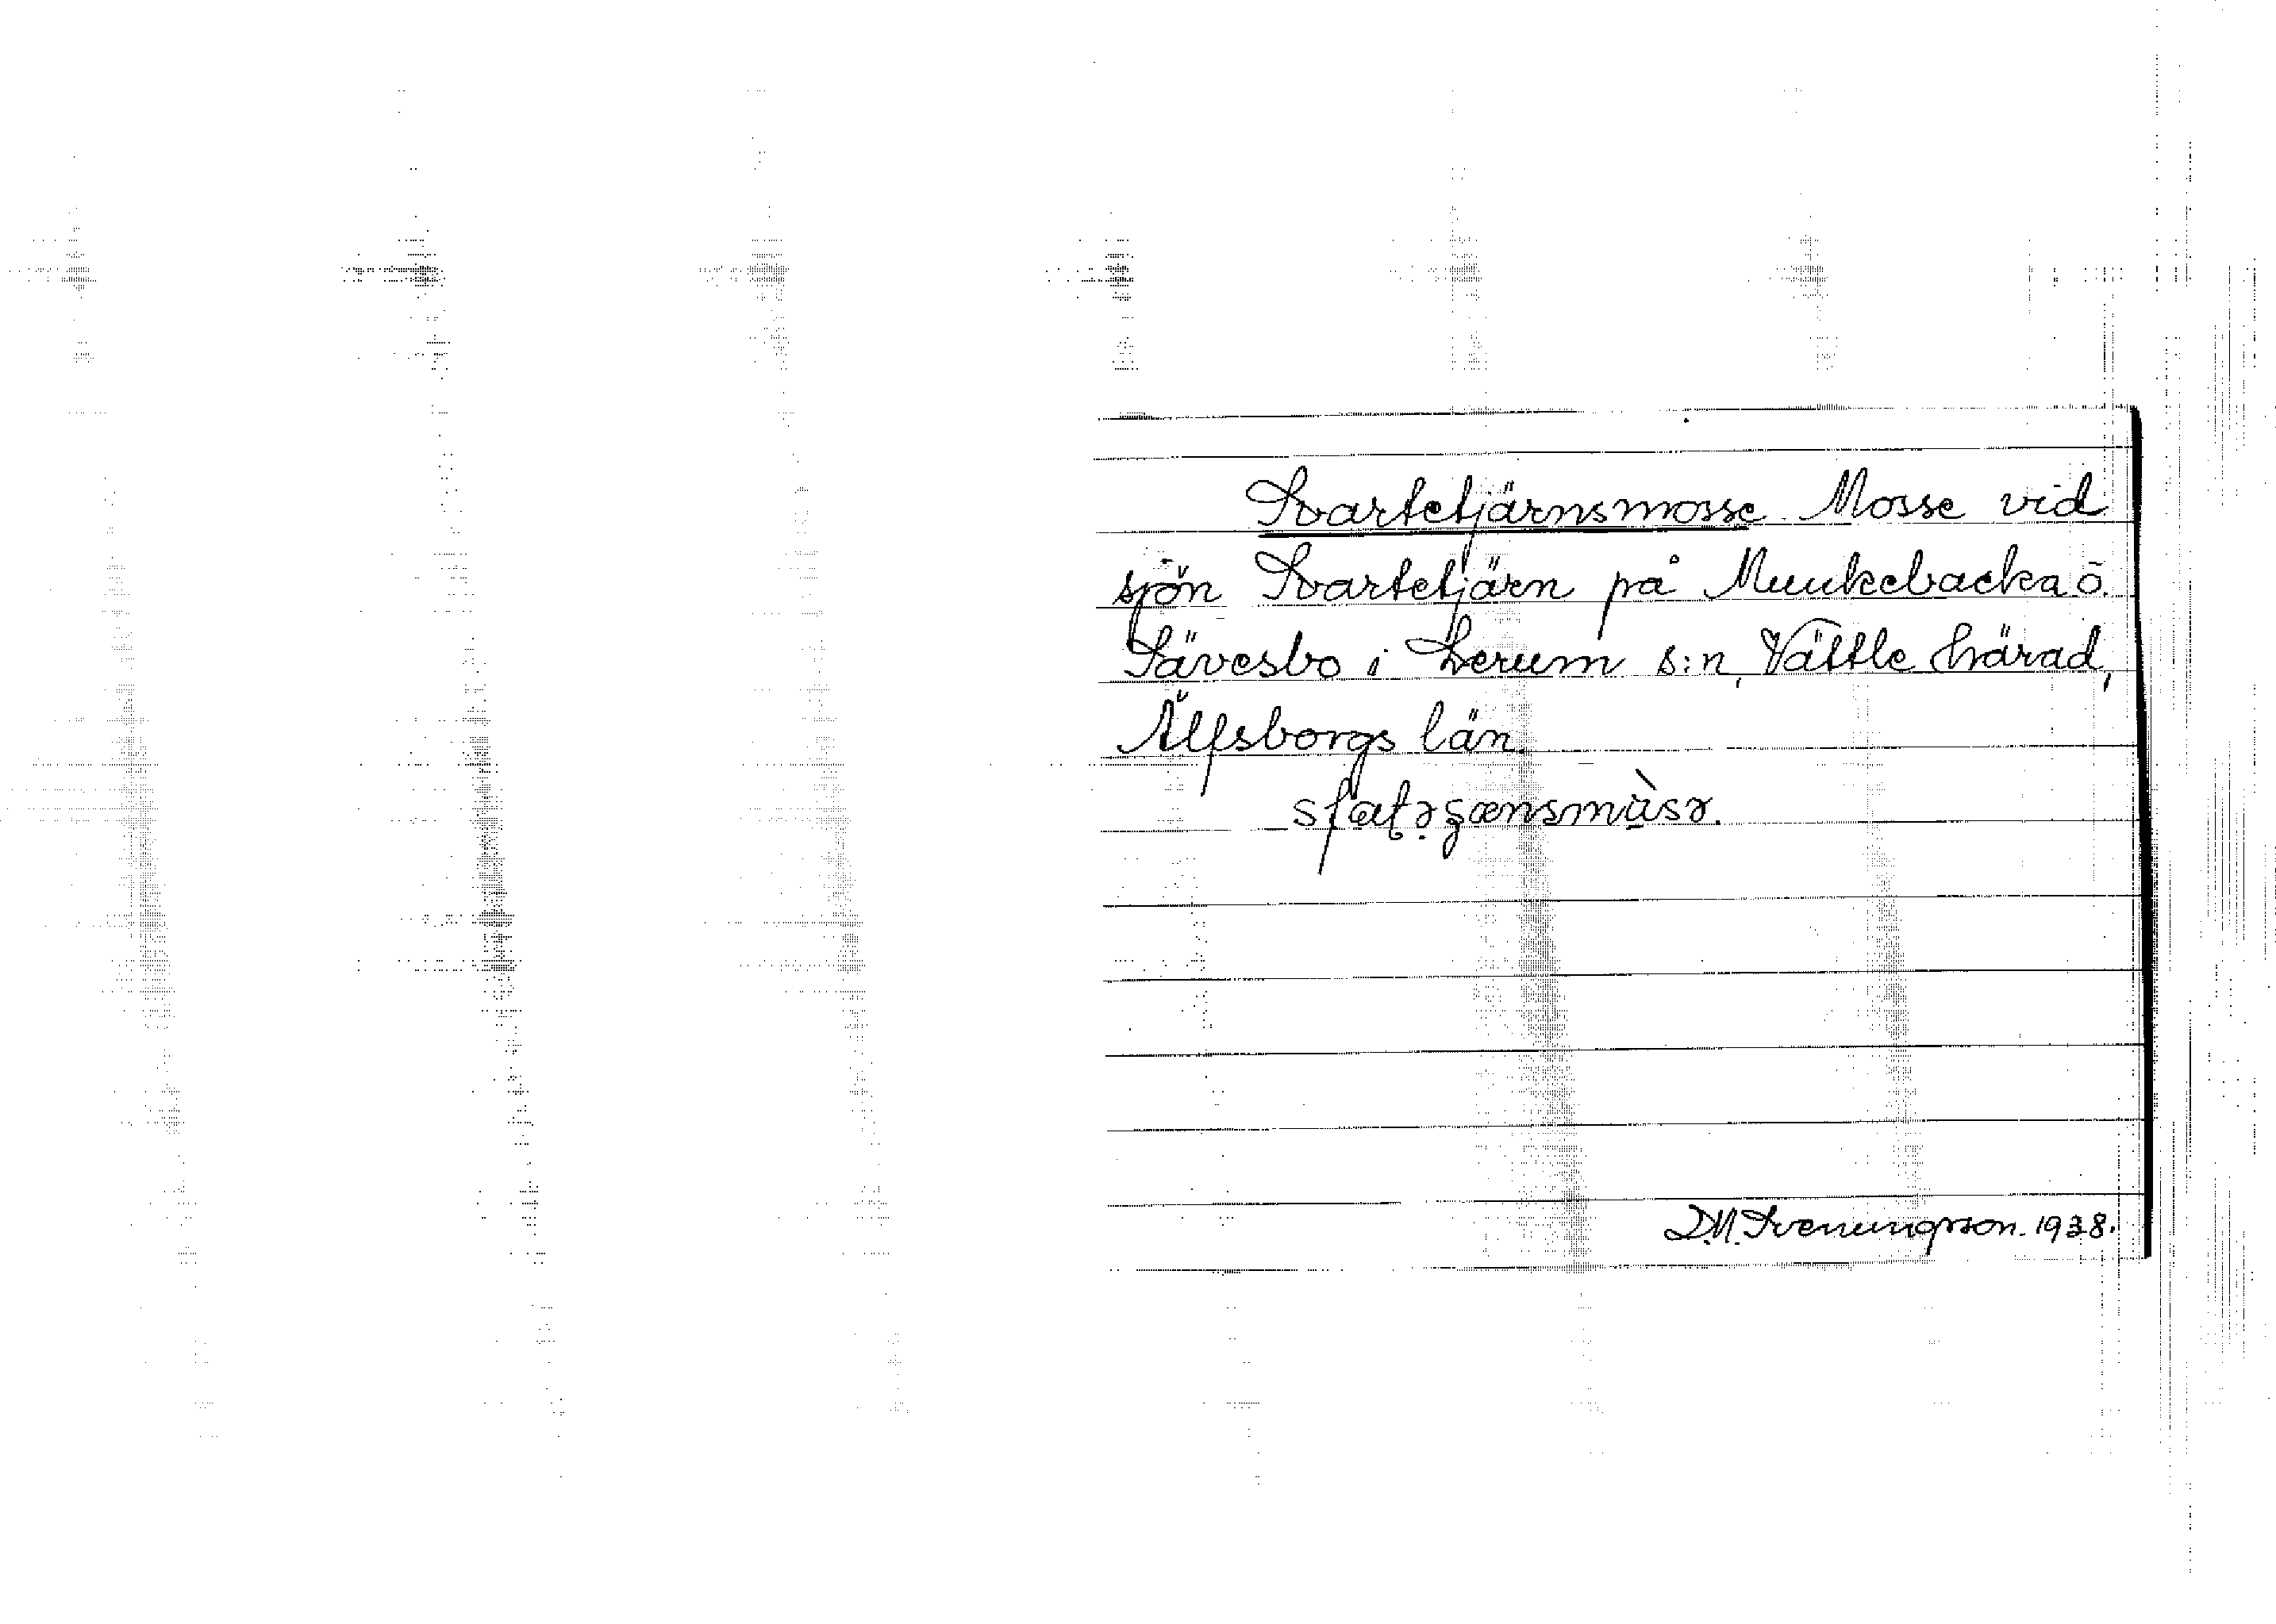 Svartetjärnsmosse Mosse vid
sjön Svartetjärn på Munkebacka ö.
Sävesbo i Lerum s:n, Vättle härad,
Älfsborgs län.
D.N. Svenungsson. 1938.